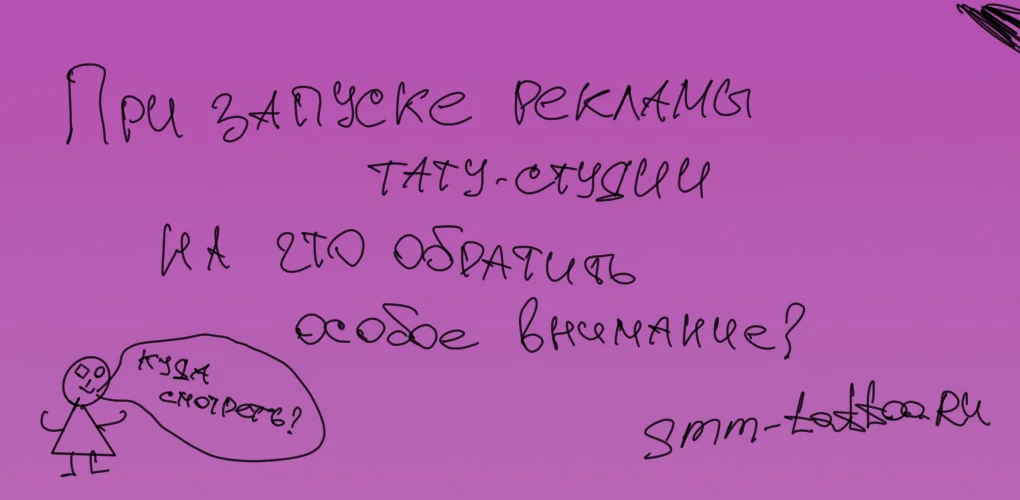 При запуске рекламы
тату-студии
на что обратить
особое внимание?
куда
смотреть?
smm-tattoo.ru